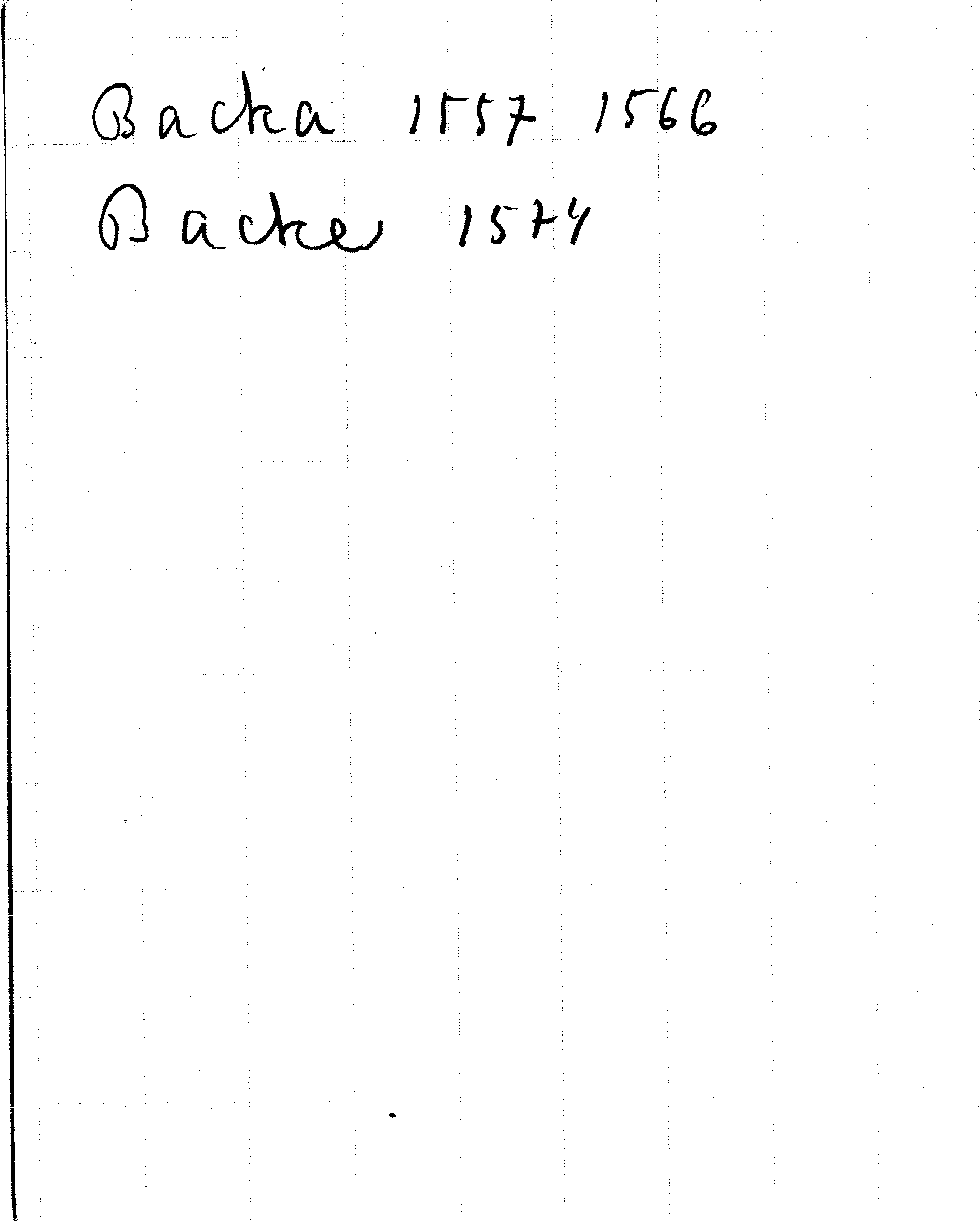 Backa 1557 1566
Backe 1574